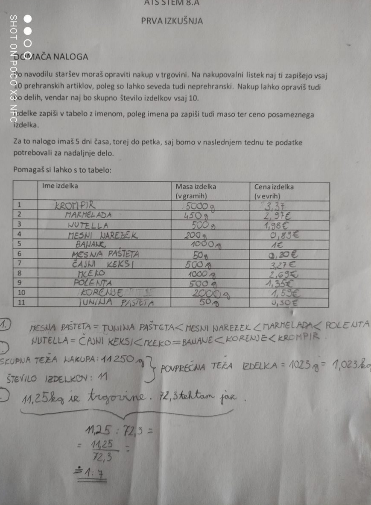 ATS STEM 8.A
PRVA IZKUŠNJA
SHOT ON POCO X3 NFC
DOMAČA NALOGA
Po navodilu staršev moraš opraviti nakup v trgovini. Na nakupovalni listek naj ti zapišejo vsaj
10 prehranskih artiklov, poleg so lahko seveda tudi neprehranski. Nakup lahko opraviš tudi
po delih, vendar naj bo skupno število izdelkov vsaj 10.
Izdelke zapiši v tabelo z imenom, poleg imena pa zapiši tudi maso ter ceno posameznega
izdelka.
Za to nalogo imaš 5 dni časa, torej do petka, saj bomo v naslednjem tednu te podatke
potrebovali za nadaljnje delo.
Pomagaš si lahko s to tabelo:
Ime izdelka Masa izdelka (v gramih) Cena izdelka (v evrih)
1 KROMPIR 5000g 3,37
2 MARMELADA 450g
3 NUTELLA 500g
4 MESNI NAREZEK 200g 0,89€
5 BANANE 1000g 1€
6 MESNA PAŠTETA 50g
7 ČAJNI KEKSI 500g
8 MLEKO 1000g
9 POLENTA 500g
10 KORENJE 2000g
11 TUNINA PAŠTETA 50g
1. MESNA PAŠTETA = TUNINA PAŠTETA < MESNI NAREZEK < MARMELADA < POLENTA
NUTELLA = ČAJNI KEKSI < MLEKO = BANANE < KORENJE < KROMPIR
SKUPNA TEŽA NAKUPA: 11250g
ŠTEVILO IZDELKOV: 11
POVPREČNA TEŽA IZDELKA = 1023g = 1,023kg
11,25kg iz trgovine. 72,3 tehtam jaz.
11,25 : 72,3 =
= 11,25
72,3
≐ 1:7